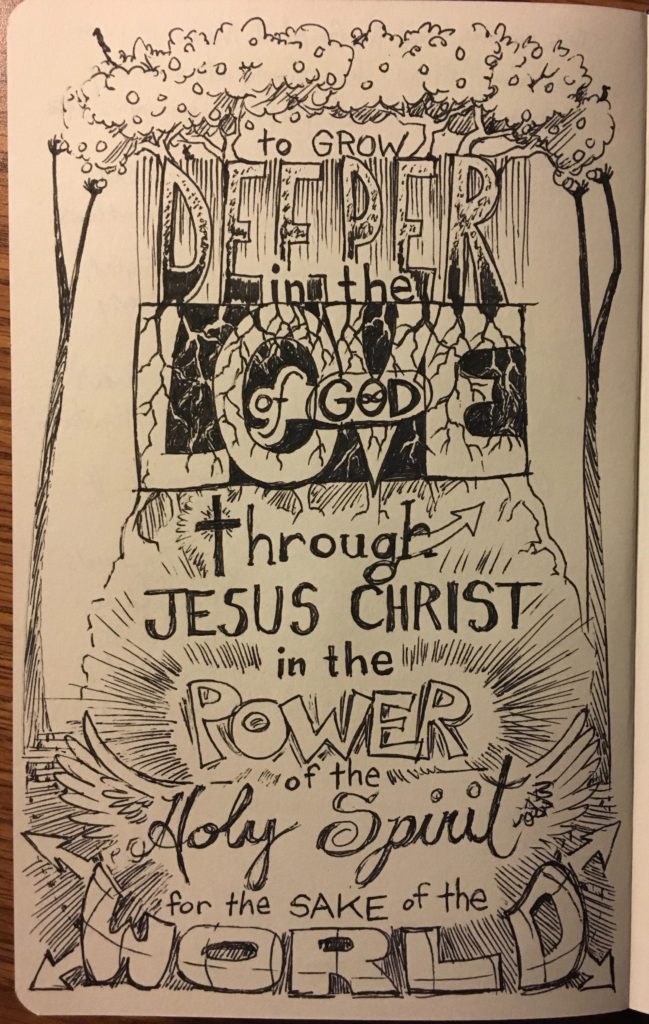 to GROW
DEEPER
in the
LOVE
of GOD
through
JESUS CHRIST
in the
POWER
of the
Holy Spirit
for the SAKE of the
WORLD